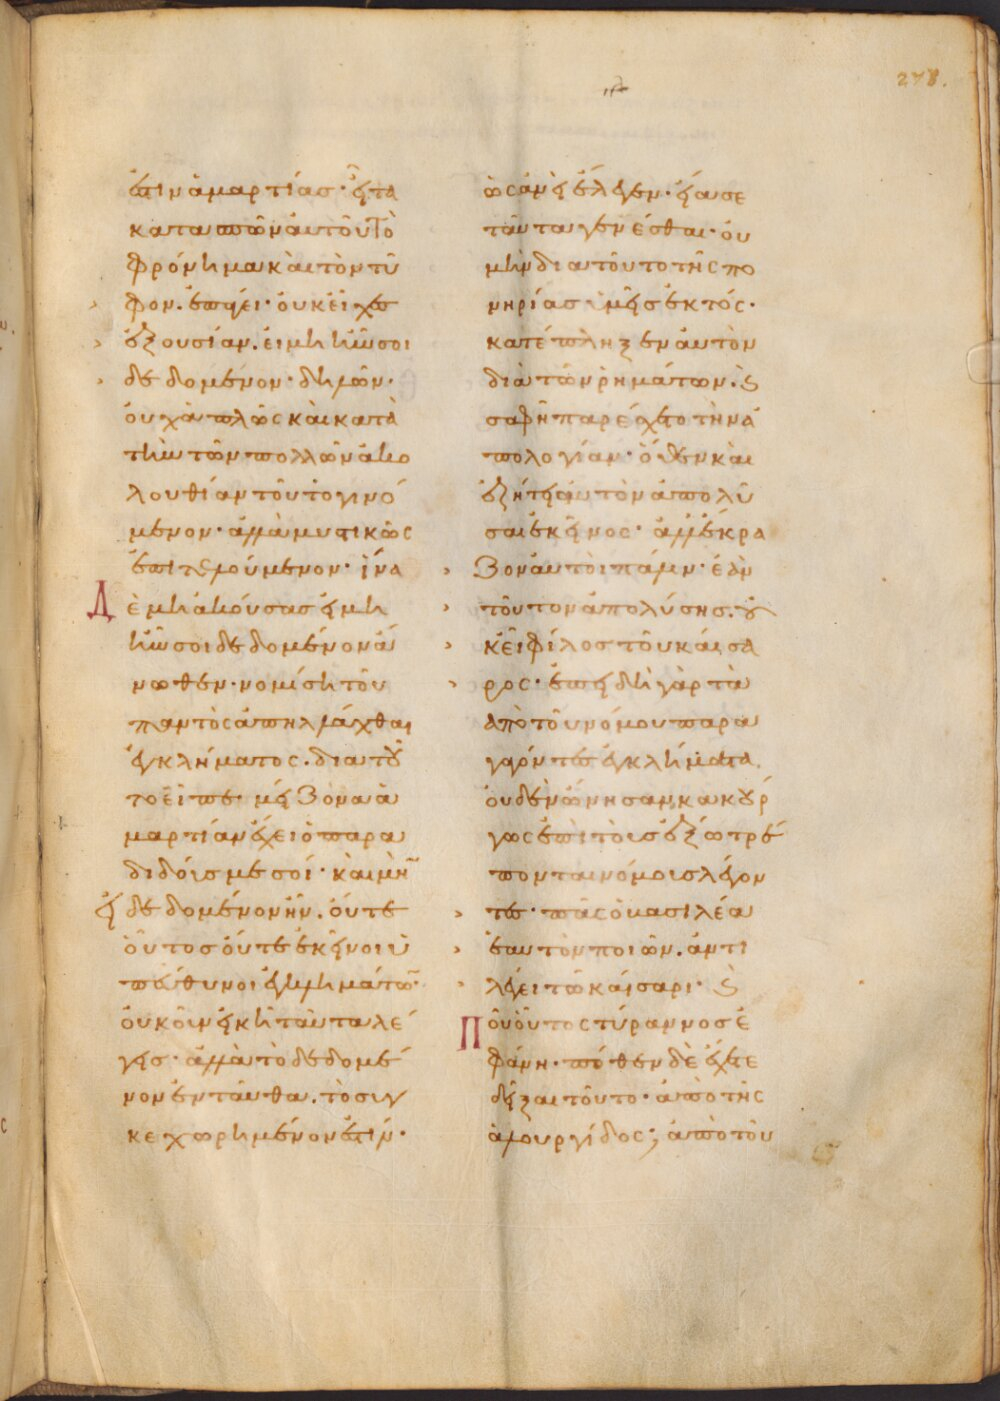 278.
ἐστιν ἁμαρτίας· εἶτα
κατασπῶν αὐτοῦ τὸ
φρόνημα καὶ τὸν τῦ
φον. ἐπήγει· οὐκ εἶχες
ἐξουσίαν. εἰ μὴ ἦν σοι
δεδομένον· δηλῶν.
οὐχ ἁπλῶς καὶ κατὰ
τὴν τῶν πολλῶν ἀκο
λουθίαν τοῦτο γινό
μενον· ἀλλὰ μυστικῶς
ἐπιτελούμενον· ἵνα
Δὲ μὴ ἀκούσας εἰ μὴ
ἦν σοι δεδομένον ἄ
νωθεν· νομίση τοῦ
παντὸς ἀπηλλάχθαι
ἐγκλήματος. διατοῦ
το εἶπε· μείζονα ἁ
μαρτίαν ἔχει ὁ παρα
διδούς με σοί· καὶ μὴν
εἰ δεδομένον ἦν. οὔτε
οὗτος οὔτε ἐκεῖνοι ὑ
πεύθυνοι ἐγκλημάτων·
οὐκοῦν εἰκῆ ταῦτα λέ
γεις· ἀλλὰ τὸ δεδομέ
νον ἐνταῦθα. τὸ συγ
κεχωρημένον ἐστίν·
ὡσανεὶ ἔλεγεν· εἴασε
ταῦτα γενέσθαι· οὐ
μὴν διατοῦτο τῆς πο
νηρίας ὑμεῖς ἐκτός·
κατέπληξεν αὐτὸν
διὰ τῶν ρημάτων. καὶ
σαφῆ παρέσχετο τὴν ἀ
πολογίαν· ὅθεν καὶ
ἐζήτει αὐτὸν ἀπολῦ
σαι ἐκεῖνος· ἀλλ' ἔκρα
ζον αὐτοὶ πάλιν· ἐὰν
τοῦτον ἀπολύσης. οὐ
κ εἶ φίλος τοῦ καίσα
ρος· ἐπειδὴ γὰρ τὰ
ἀπὸ τοῦ νόμου παρα
γαγόντες ἐγκλήματα
οὐδὲν ὤνησαν, κακούρ
γως ἐπὶ τοὺς ἔξω τρέ
πονται νόμους λέγον
τες· πᾶς ὁ βασιλέα
ἑαυτὸν ποιῶν. ἀντι
λέγει τῶ καίσαρι· καὶ
Ποῦ οὗτος τύραννος ἐ
φάνη· πόθεν δὲ ἔχετε
δεῖξαι τοῦτο· ἀπὸ τῆς
ἁλουργίδος; ἀπὸ τοῦ